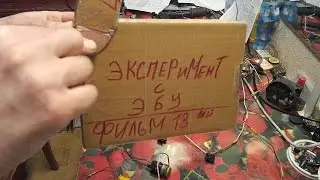 ЭКСПЕРИМЕНТ
С
ЭБУ
ФИЛЬМ 13